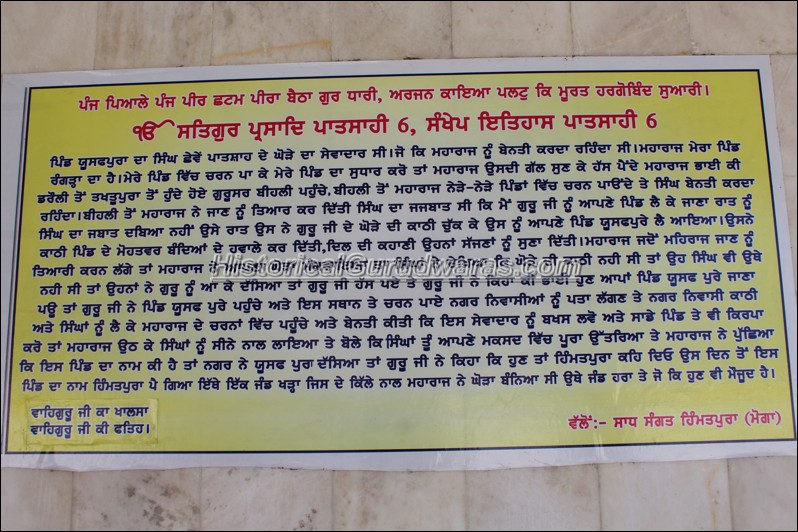 ਪੰਜ ਪਿਆਲੇ ਪੰਜ ਪੀਰ ਛਟਮ ਪੀਰਾ ਬੈਠਾ ਗੁਰ ਧਾਰੀ, ਅਰਜਨ ਕਾਇਆ ਪਲਟੁ ਕਿ ਮੂਰਤ ਹਰਗੋਬਿੰਦ ਸੁਆਰੀ।
ੴ ਸਤਿਗੁਰ ਪ੍ਰਸਾਦਿ ਪਾਤਸਾਹੀ 6, ਸੰਖੇਪ ਇਤਿਹਾਸ ਪਾਤਸਾਹੀ 6
ਪਿੰਡ ਯੂਸਫਪੁਰਾ ਦਾ ਸਿੰਘ ਛੇਵੇਂ ਪਾਤਸ਼ਾਹ ਦੇ ਘੋੜੇ ਦਾ ਸੇਵਾਦਾਰ ਸੀ।ਜੋ ਕਿ ਮਹਾਰਾਜ ਨੂੰ ਬੇਨਤੀ ਕਰਦਾ ਰਹਿੰਦਾ ਸੀ।ਮਹਾਰਾਜ ਮੇਰਾ ਪਿੰਡ
ਰੰਗੜ੍ਹਾ ਦਾ ਹੈ।ਮੇਰੇ ਪਿੰਡ ਵਿੱਚ ਚਰਨ ਪਾ ਕੇ ਮੇਰੇ ਪਿੰਡ ਦਾ ਸੁਧਾਰ ਕਰੋ ਤਾਂ ਮਹਾਰਾਜ ਉਸਦੀ ਗੱਲ ਸੁਣ ਕੇ ਹੱਸ ਪੈਂਦੇ ਮਹਾਰਾਜ ਭਾਈ ਕੀ
ਡਰੌਲੀ ਤੋਂ ਤਖਤੂਪੁਰਾ ਤੋਂ ਹੁੰਦੇ ਹੋਏ ਗੁਰੂਸਰ ਬੀਹਲੀ ਪਹੁੰਚੇ,ਬੀਹਲੀ ਤੋਂ ਮਹਾਰਾਜ ਨੇੜੇ-ਨੇੜੇ ਪਿੰਡਾਂ ਵਿੱਚ ਚਰਨ ਪਾਉਂਦੇ ਤੇ ਸਿੰਘ ਬੇਨਤੀ ਕਰਦਾ
ਰਹਿੰਦਾ।ਬੀਹਲੀ ਤੋਂ ਮਹਾਰਾਜ ਨੇ ਜਾਣ ਨੂੰ ਤਿਆਰ ਕਰ ਦਿੱਤੀ ਸਿੰਘ ਦਾ ਜਜਬਾਤ ਸੀ ਕਿ ਮੈਂ ਗੁਰੂ ਜੀ ਨੂੰ ਆਪਣੇ ਪਿੰਡ ਲੈ ਕੇ ਜਾਣਾ ਰਾਤ ਨੂੰ
ਸਿੰਘ ਦਾ ਜਬਾਤ ਦਬਿਆ ਨਹੀਂ ਉਸੇ ਰਾਤ ਉਸ ਨੇ ਗੁਰੂ ਜੀ ਦੇ ਘੋੜੇ ਦੀ ਕਾਠੀ ਚੁੱਕ ਕੇ ਉਸ ਨੂੰ ਆਪਣੇ ਪਿੰਡ ਯੂਸਫਪੁਰੇ ਲੈ ਆਇਆ।ਉਸਨੇ
ਕਾਠੀ ਪਿੰਡ ਦੇ ਮੋਹਤਵਰ ਬੰਦਿਆਂ ਦੇ ਹਵਾਲੇ ਕਰ ਦਿੱਤੀ,ਦਿਲ ਦੀ ਕਹਾਣੀ ਉਹਨਾਂ ਸੱਜਣਾਂ ਨੂੰ ਸੁਣਾ ਦਿੱਤੀ।ਮਹਾਰਾਜ ਜਦੋਂ ਮਹਿਰਾਜ ਜਾਣ ਨੂੰ
ਤਿਆਰੀ ਕਰਨ ਲੱਗੇ ਤਾਂ ਮਹਾਰਾਜ ਕਿ ਘੋੜੇ ਦੀ ਕਾਠੀ ਨਹੀ ਸੀ ਤਾਂ ਉਹ ਸਿੰਘ ਵੀ ਉਥੇ
HistoricalGurudwaras.com
ਨਹੀ ਸੀ ਤਾਂ ਉਹਨਾਂ ਨੇ ਗੁਰੂ ਨੂੰ ਆ ਕੇ ਦੱਸਿਆ ਤਾਂ ਗੁਰੂ ਜੀ ਹੱਸ ਪਏ ਤੇ ਗੁਰੂ ਜੀ ਨੇ ਕਿਹਾ ਕੀ ਭਾਈ ਹੁਣ ਆਪਾਂ ਪਿੰਡ ਯੂਸਫ ਪੁਰੇ ਜਾਣਾ
ਪਊ ਤਾਂ ਗੁਰੂ ਜੀ ਨੇ ਪਿੰਡ ਯੂਸਫ ਪੁਰੇ ਪਹੁੰਚੇ ਅਤੇ ਇਸ ਸਥਾਨ ਤੇ ਚਰਨ ਪਾਏ ਨਗਰ ਨਿਵਾਸੀਆਂ ਨੂੰ ਪਤਾ ਲੱਗਣ ਤੇ ਨਗਰ ਨਿਵਾਸੀ ਕਾਠੀ
ਅਤੇ ਸਿੰਘਾਂ ਨੂੰ ਲੈ ਕੇ ਮਹਾਰਾਜ ਦੇ ਚਰਨਾਂ ਵਿੱਚ ਪਹੁੰਚੇ ਅਤੇ ਬੇਨਤੀ ਕੀਤੀ ਕਿ ਇਸ ਸੇਵਾਦਾਰ ਨੂੰ ਬਖਸ ਲਵੋ ਅਤੇ ਸਾਡੇ ਪਿੰਡ ਤੇ ਵੀ ਕਿਰਪਾ
ਕਰੋ ਤਾਂ ਮਹਾਰਾਜ ਉਠ ਕੇ ਸਿੰਘਾਂ ਨੂੰ ਸੀਨੇ ਨਾਲ ਲਾਇਆ ਤੇ ਬੋਲੇ ਕਿ ਸਿੰਘਾਂ ਤੂੰ ਆਪਣੇ ਮਕਸਦ ਵਿੱਚ ਪੂਰਾ ਉੱਤਰਿਆ ਤੇ ਮਹਾਰਾਜ ਨੇ ਪੁੱਛਿਆ
ਕਿ ਇਸ ਪਿੰਡ ਦਾ ਨਾਮ ਕੀ ਹੈ ਤਾਂ ਨਗਰ ਨੇ ਯੂਸਫ ਪੁਰਾ ਦੱਸਿਆ ਤਾਂ ਗੁਰੂ ਜੀ ਨੇ ਕਿਹਾ ਕਿ ਹੁਣ ਤਾਂ ਹਿੰਮਤਪੁਰਾ ਕਹਿ ਦਿਓ ਉਸ ਦਿਨ ਤੋਂ ਇਸ
ਪਿੰਡ ਦਾ ਨਾਮ ਹਿੰਮਤਪੁਰਾ ਪੈ ਗਿਆ ਇੱਥੇ ਇੱਕ ਜੰਡ ਖੜ੍ਹਾ ਜਿਸ ਦੇ ਕਿੱਲੇ ਨਾਲ ਮਹਾਰਾਜ ਨੇ ਘੋੜਾ ਬੰਨਿਆ ਸੀ ਉਥੇ ਜੰਡ ਹਰਾ ਤੇ ਜੋ ਕਿ ਹੁਣ ਵੀ ਮੌਜੂਦ ਹੈ।
ਵਾਹਿਗੁਰੂ ਜੀ ਕਾ ਖਾਲਸਾ
ਵਾਹਿਗੁਰੂ ਜੀ ਕੀ ਫਤਿਹ।
ਵੱਲੋਂ:- ਸਾਧ ਸੰਗਤ ਹਿੰਮਤਪੁਰਾ (ਮੋਗਾ)